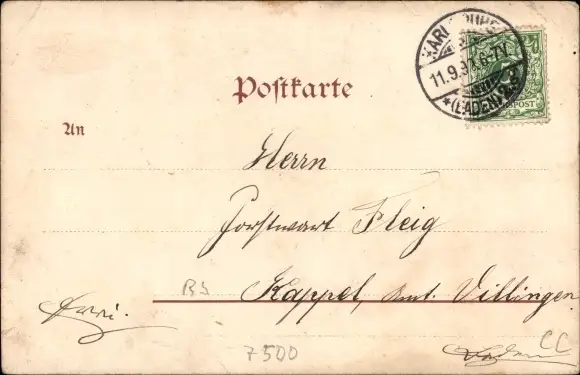 KARLSRUHE
11.9.97. 6-7V.
*(BADEN) 2.a
Postkarte
An
Herrn
Forstwart Fleig
BS
Kappel, Amt. Villingen
Baden
CC
7500